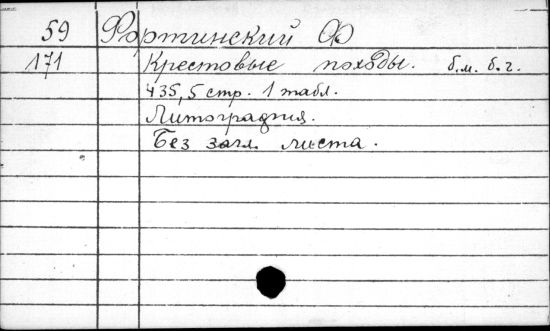 59 Фортинский Ф
171 Крестовые походы. б.м. б.г.
435,5 стр. 1 табл.
Литография.
Без загл. листа.